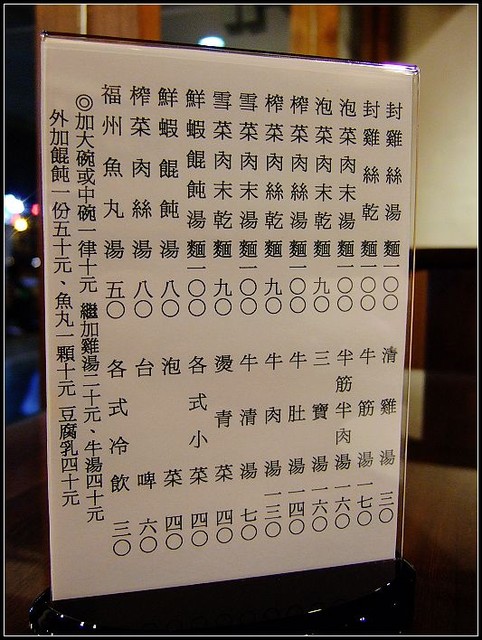 封雞絲湯麵一〇〇
封雞絲乾麵一〇〇
泡菜肉末湯麵一〇〇
泡菜肉末乾麵九〇
榨菜肉絲湯麵一〇〇
榨菜肉絲乾麵九〇
雪菜肉末湯麵一〇〇
雪菜肉末乾麵九〇
鮮蝦餛飩湯麵一〇〇
鮮蝦餛飩湯八〇
榨菜肉絲湯八〇
福州魚丸湯五〇
清雞湯三〇
牛筋湯一七〇
半筋半肉湯一六〇
三寶湯一六〇
牛肚湯一四〇
牛肉湯一三〇
牛清湯七〇
燙青菜四〇
各式小菜四〇
泡菜四〇
台啤六〇
各式冷飲三〇
◎加大碗或中碗一律十元 繼加雞湯二十元、牛湯四十元
外加餛飩一份五十元、魚丸一顆十元 豆腐乳四十元